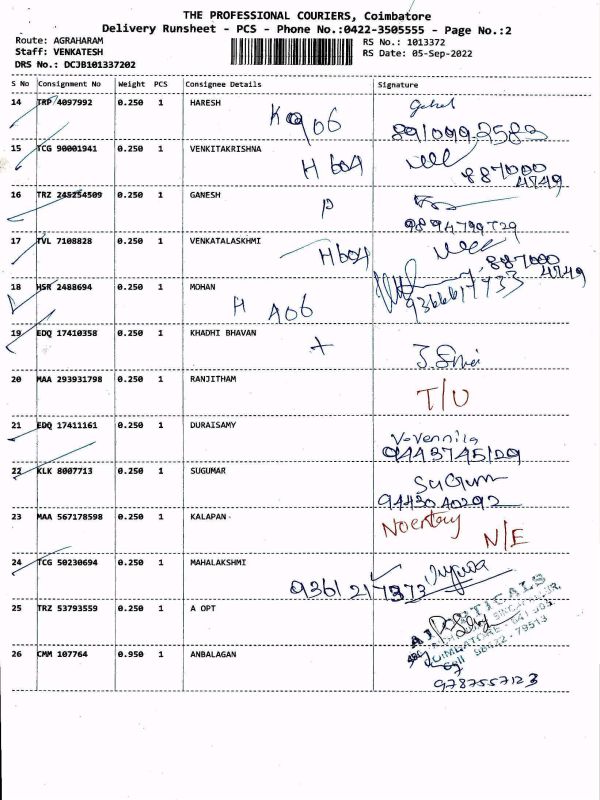 THE PROFESSIONAL COURIERS, Coimbatore
Delivery Runsheet - PCS - Phone No.:0422-3505555 - Page No.:2
Route: AGRAHARAM RS No.: 1013372
Staff: VENKATESH RS Date: 05-Sep-2022
DRS No.: DCJB101337202
S No Consignment No Weight PCS Consignee Details Signature
14 TRP 4097992 0.250 1 HARESH
15 TCG 90001941 0.250 1 VENKITAKRISHNA
H 604 887000
4749
16 TRZ 245254509 0.250 1 GANESH
P
17 TVL 7108828 0.250 1 VENKATALASKHMI
H 604 887000
4749
18 HSR 2488694 0.250 1 MOHAN
H A06
19 EDQ 17410358 0.250 1 KHADHI BHAVAN
20 MAA 293931798 0.250 1 RANJITHAM
T/U
21 EDQ 17411161 0.250 1 DURAISAMY
V. Vennila
9443745129
22 KLK 8007713 0.250 1 SUGUMAR
9443040292
23 MAA 567178598 0.250 1 KALAPAN
N/E
24 TCG 50230694 0.250 1 MAHALAKSHMI
9361217373
25 TRZ 53793559 0.250 1 A OPT
26 CMM 107764 0.950 1 ANBALAGAN
9787557123